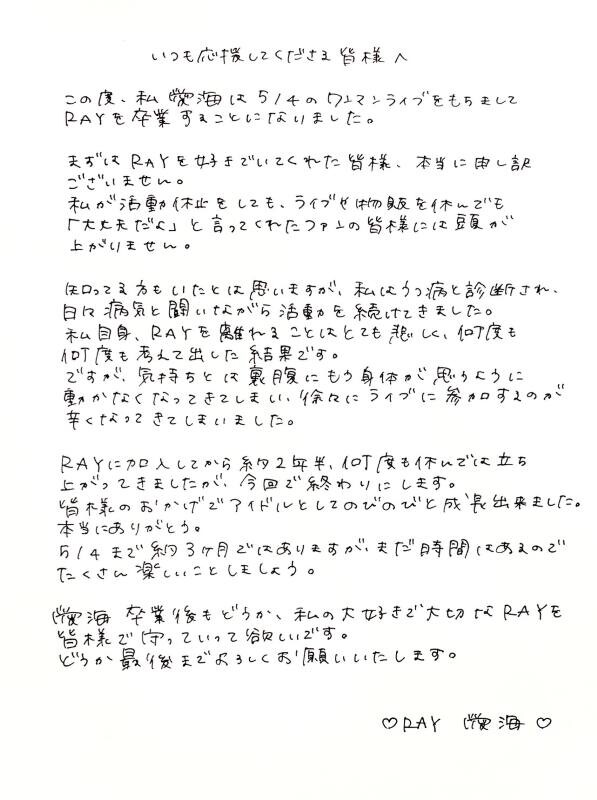 いつも応援してくださる皆様へ
この度、私 愛海は5/4のワンマンライブをもちまして
RAYを卒業することになりました。
まずはRAYを好きでいてくれた皆様、本当に申し訳
ございません。
私が活動休止をしても、ライブや物販を休んでも
「大丈夫だよ」と言ってくれたファンの皆様には頭が
上がりません。
知ってる方もいたとは思いますが、私はうつ病と診断され、
日々病気と闘いながら活動を続けてきました。
私自身、RAYを離れることはとても悲しく、何度も
何度も考えて出した結果です。
ですが、気持ちとは裏腹にもう身体が思うように
動かなくなってきてしまい、徐々にライブに参加するのが
辛くなってきてしまいました。
RAYに加入してから約2年半、何度も休んでは立ち
上がってきましたが、今回で終わりにします。
皆様のおかげでアイドルとしてのびのびと成長出来ました。
本当にありがとう。
5/4まで約3ヶ月ではありますが、まだ時間はあるので
たくさん楽しいことしましょう。
愛海 卒業後もどうか、私の大好きで大切なRAYを
皆様で守っていって欲しいです。
どうか最後までよろしくお願いいたします。
♡RAY 愛海♡